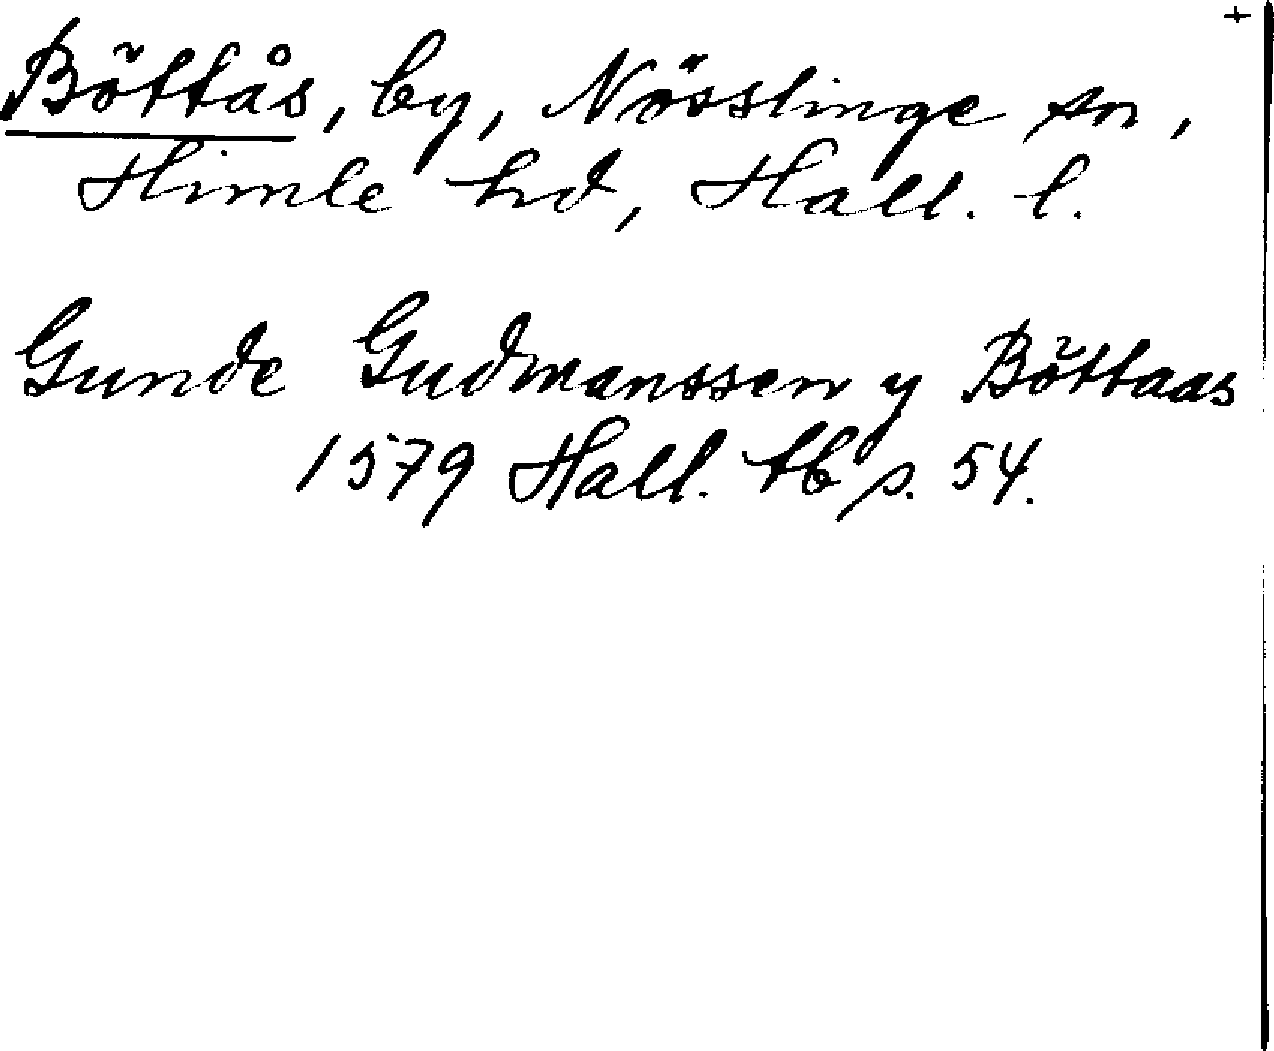 +
Böttås, by, Nösslinge sn,
Himle hd, Hall. l.
Gunde Gudmanssen y Böttaas
1579 Hall. tb s. 54.